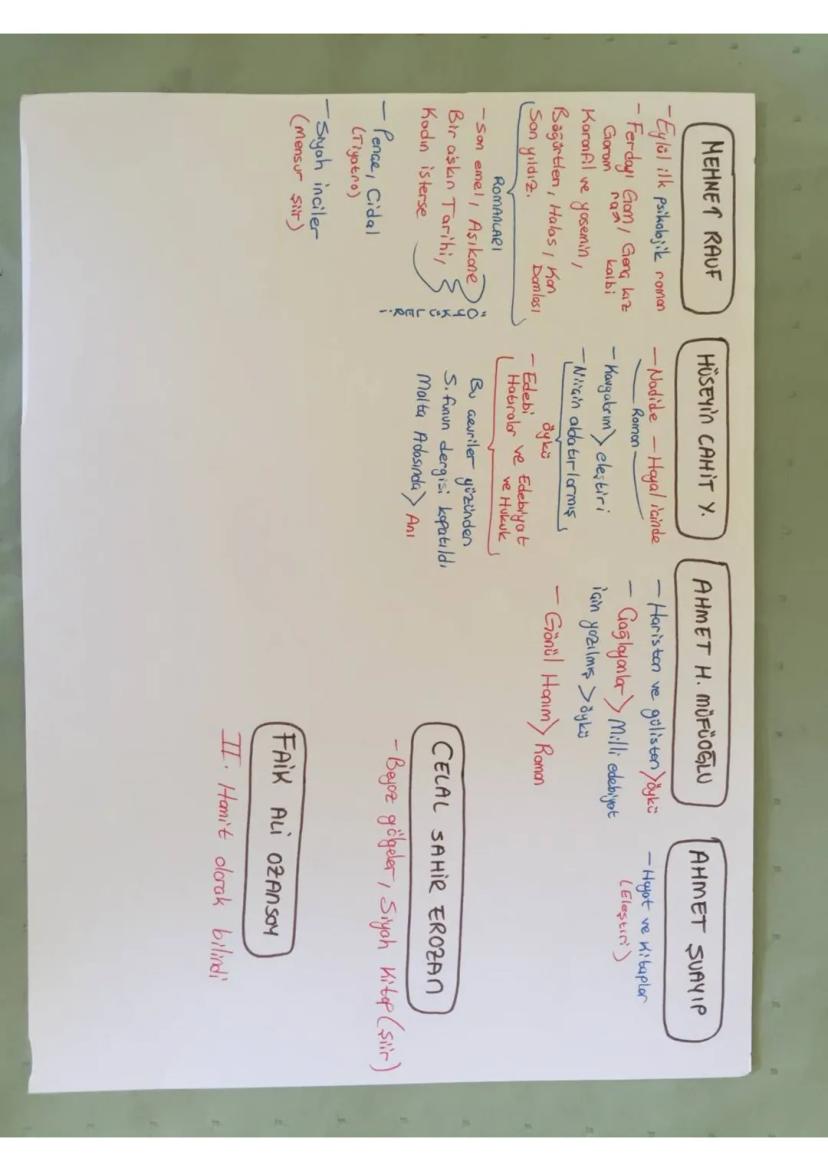 MEHMET RAUF
- Eylül ilk psikolojik roman
- Ferdayı Garam, Genç kız
Garam kalbi
Karanfil ve yasemin,
Böğürtlen, Halas, Kan
Damlası
Son yıldız.
ROMANLARI
- Son emel, Aşıkane
Bir aşkın Tarihi,
Kadın isterse
ÖYKÜLERİ
- Pençe, Cidal
(Tiyatro)
- Siyah inciler
(Mensur şiir)
HÜSEYİN CAHİT Y.
- Nadide - Hayal içinde
Roman
- Kavgalarım > eleştiri
- Niçin aldatırlarmış
öykü
- Edebi Hatıralar ve Edebiyat
ve Hukuk
Bu çeviriler yüzünden
S. fünun dergisi kapatıldı
Malta Adasında > Anı
AHMET H. MÜFÜOĞLU
- Haristan ve gülistan > öykü
- Çağlayanlar > Milli edebiyat
için yazılmış > öykü
- Gönül Hanım > Roman
AHMET ŞUAYIP
- Hayat ve Kitaplar
(Eleştiri)
CELAL SAHİR EROZAN
- Beyaz gölgeler, Siyah Kitap (şiir)
FAİK ALİ OZANSOY
II. Hamit olarak bilindi